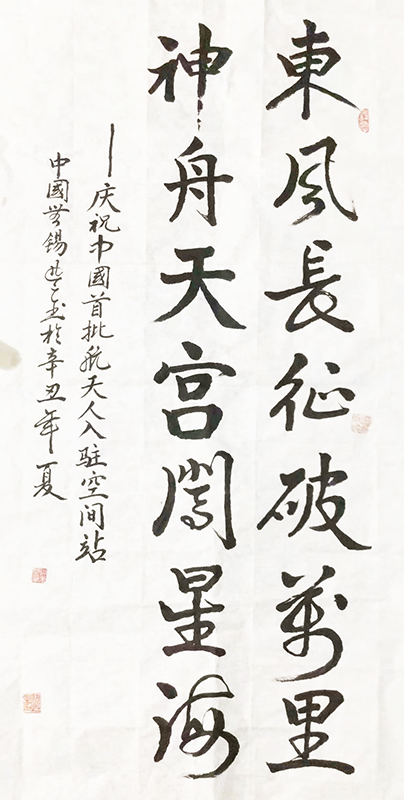 東風長征破萬里
神舟天宮闖星海
—庆祝中國首批航天人入駐空间站
中國無锡 於辛丑年夏